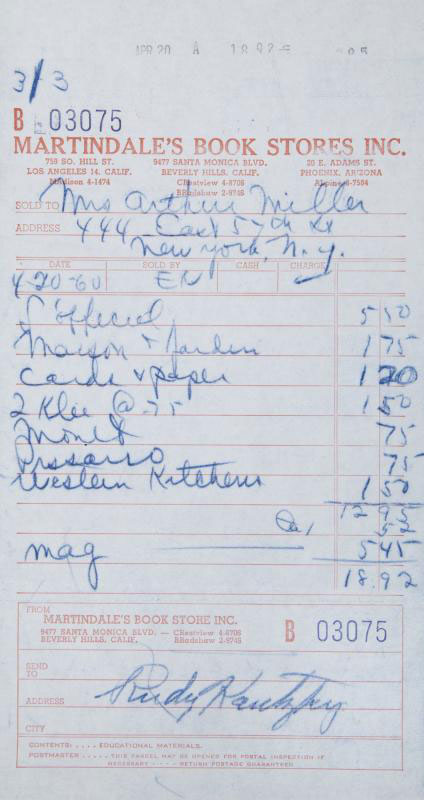 APR 20 A 18.92
3/3
B 03075
MARTINDALE'S BOOK STORES INC.
758 SO. HILL ST. 9477 SANTA MONICA BLVD. 20 E. ADAMS ST.
LOS ANGELES 14, CALIF. BEVERLY HILLS, CALIF. PHOENIX, ARIZONA
MAdison 4-1474 CRestview 4-8706 ALpine 8-7504
BRadshaw 2-9746
SOLD TO Mrs Arthur Miller
ADDRESS 444 East 57th St
New York, N.Y.
DATE SOLD BY CASH CHARGE
4-20-60 EN ✓
L'officiel 5 50
Maison & Jardin 1 75
Cards & paper 1 20
2 Klee @ .75 1 50
Monet 75
Pissarro 75
Western Kitchens 1 50
12 95
52
mag 5 45
18.92
FROM
MARTINDALE'S BOOK STORE INC.
9477 SANTA MONICA BLVD. — CRestview 4-8706
BEVERLY HILLS, CALIF. BRadshaw 2-9746
B 03075
SEND TO
ADDRESS Rudy Kautzky
CITY
CONTENTS: . . . . EDUCATIONAL MATERIALS.
POSTMASTER . . . . . THIS PARCEL MAY BE OPENED FOR POSTAL INSPECTION IF
NECESSARY - - - - - RETURN POSTAGE GUARANTEED